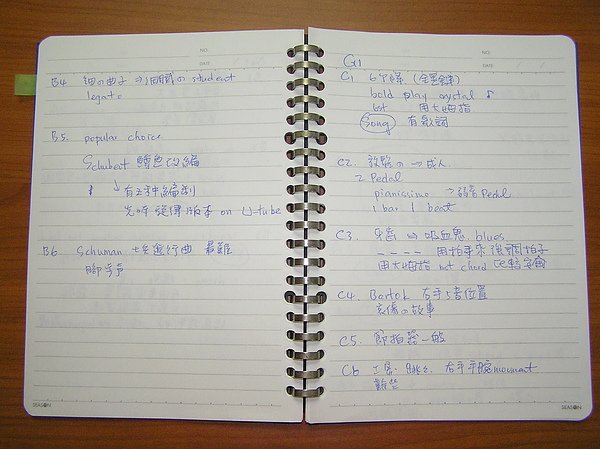 NO.
DATE
B4 細の曲子 ⇒ 細膩の student
legato
B5. popular choice
Schubert 鱒魚改編
↓ 有五种編制
先听 鋼琴版本 on U-tube
B6 Schuman 士兵進行曲 最難
腳步声
SEASON
NO.
DATE
G1
C1 6个降
bold play crystal
1st 用大姆指
Song 有歌詞
C2. → 成人
2 Pedal
pianissimo → 弱音 Pedal
1 bar 1 beat
C3. 吸血鬼 blues
用拍手來強調拍子
用大姆指 1st chord
C4. Bartok 右手5音位置
哀傷の故事
C5. 節拍器一般
C6 工居 跳 右手手腕 moument
SEASON